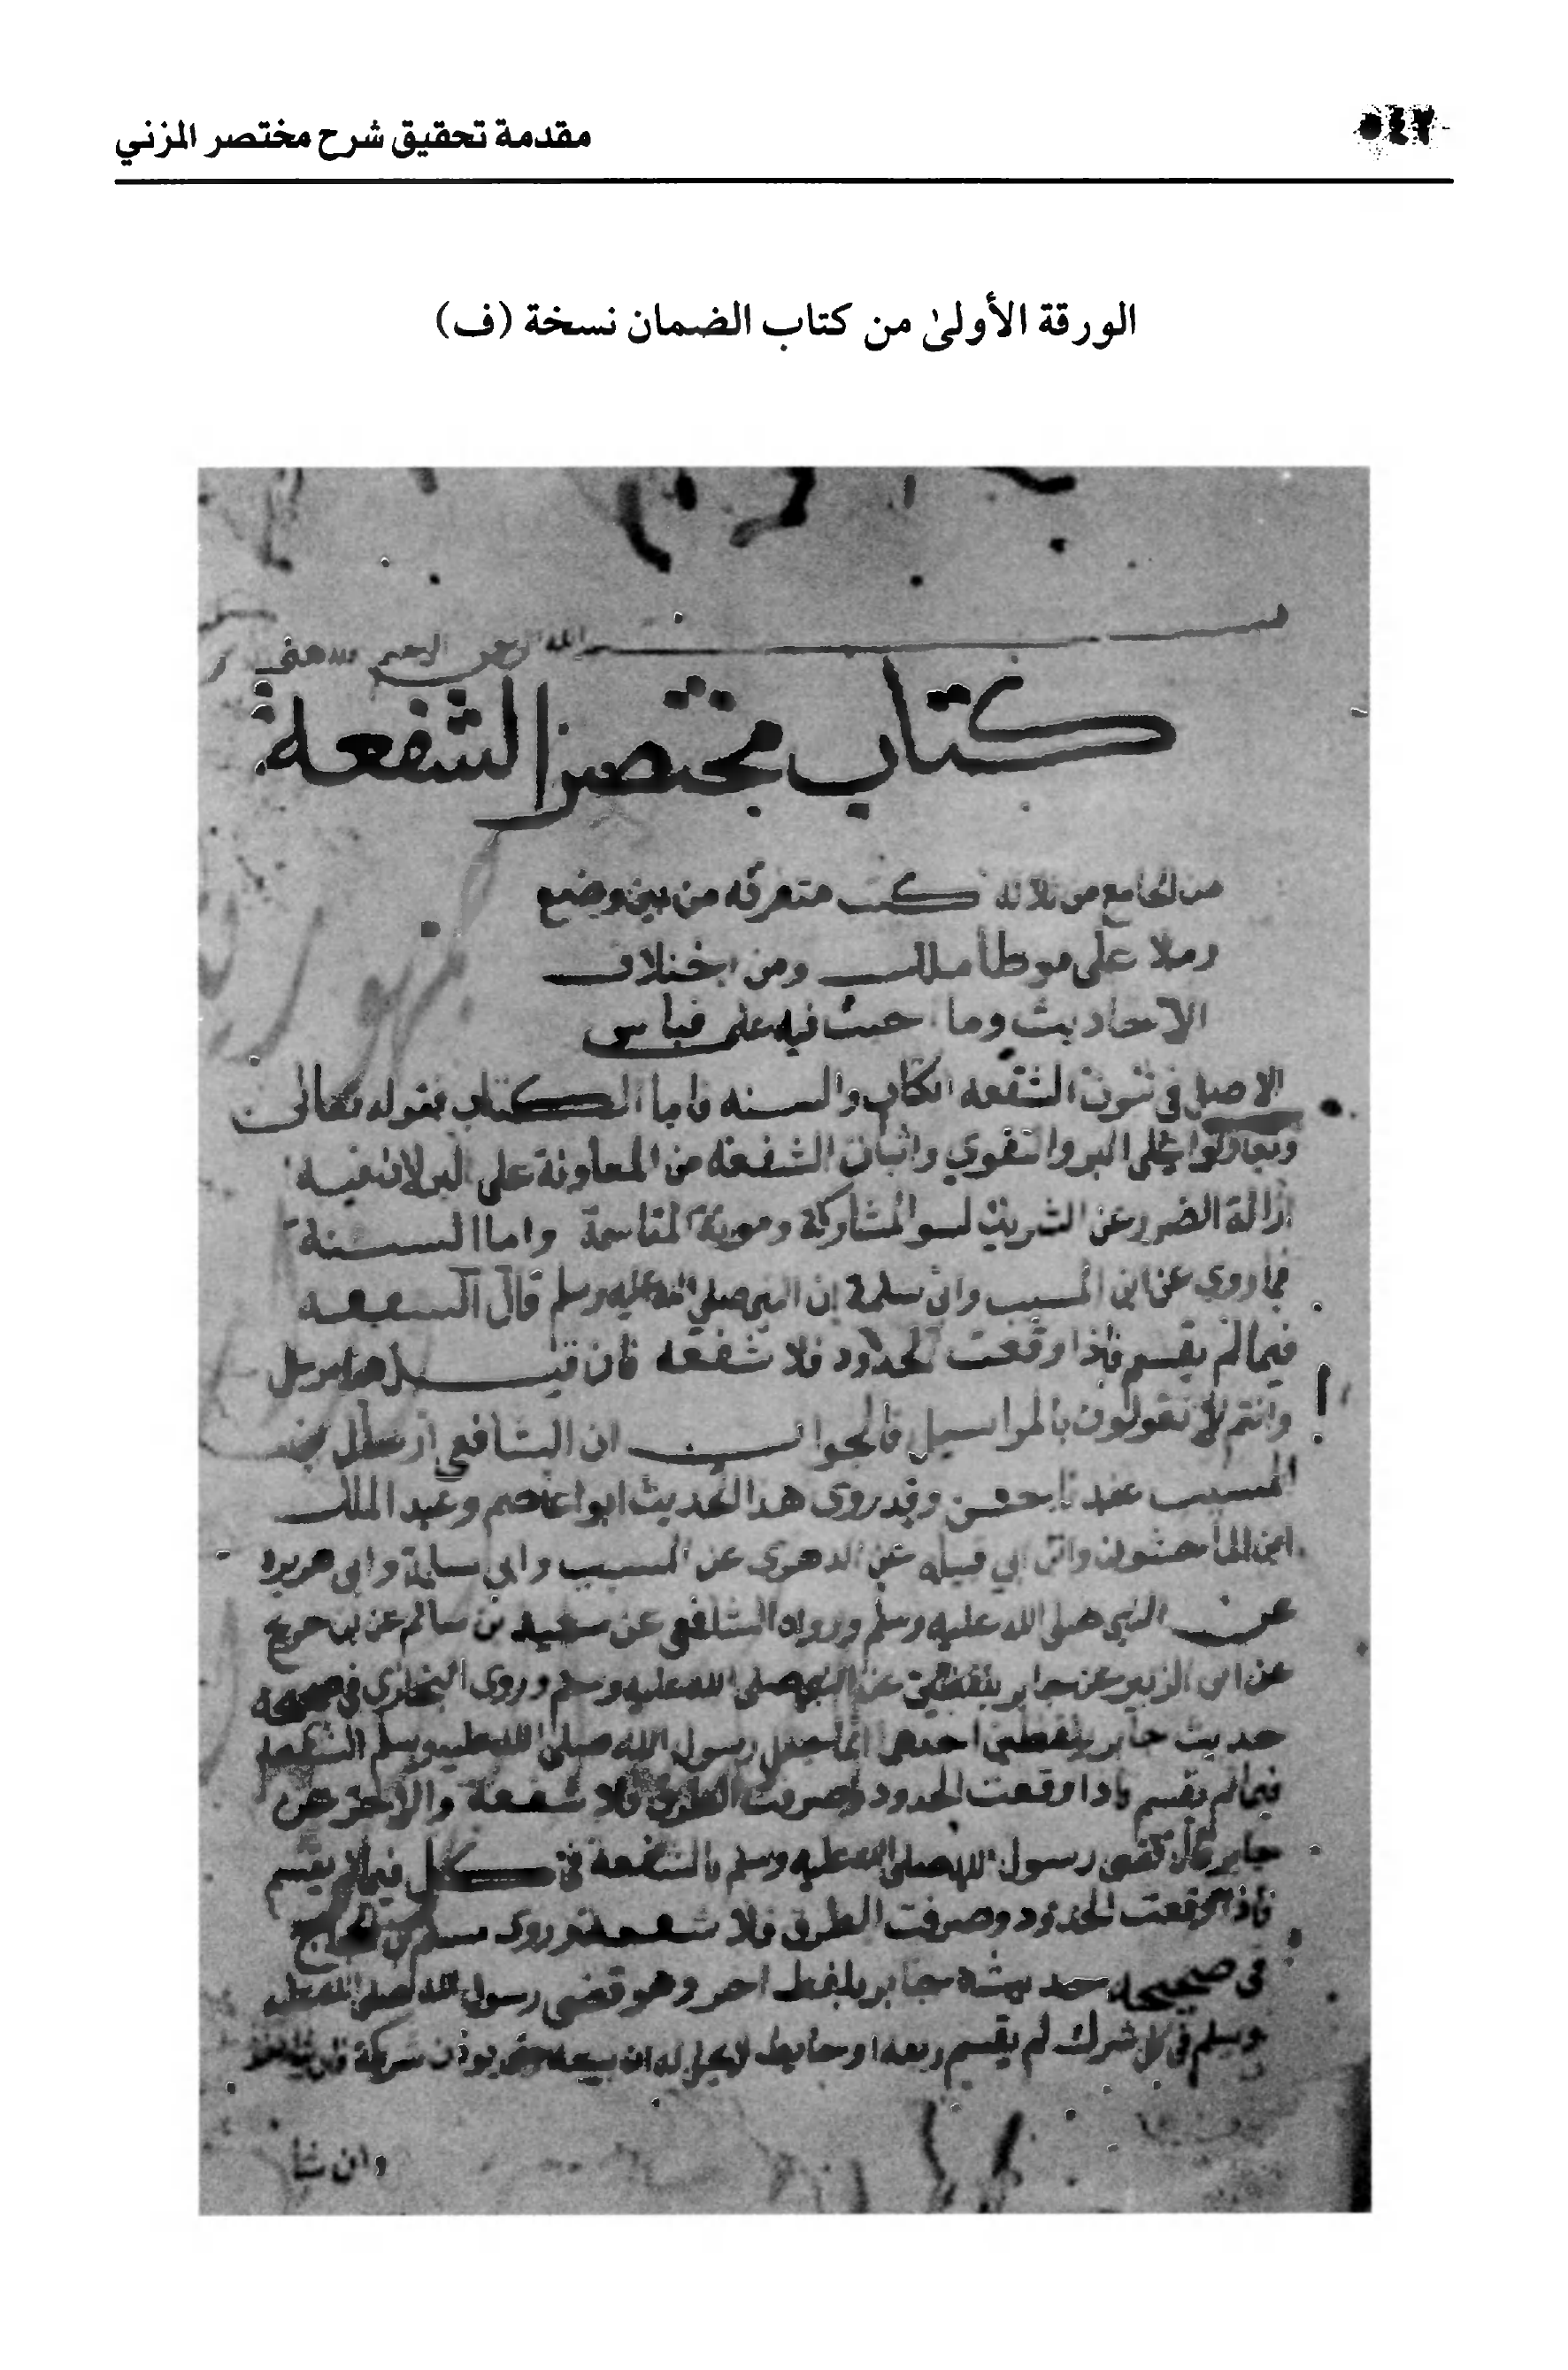 مقدمة تحقيق شرح مختصر المزني
الورقة الأولىٰ من كتاب الضمان نسخة (ف)
الله الرحمن الرحيم
كتاب مختصر الشفعة
من الجامع من ثلاثة كتب متفرقه من بين وضع
واملا على موطأ مالك ومن اختلاف
الاحاديث وما احببت فيه على قياس
الاصل في ثبوت الشفعه الكتاب والسنه فاما الكتاب فقوله تعالى
وتعاونوا على البر والتقوي واثبات الشفعة من المعاونة على البر لان فيه
ازالة الضرر عن الشريك لسو المشاركة ومونة المقاسمة واما السنة
فما روي عن ابن المسيب وابي سلمة ان النبي صلى الله عليه وسلم قال الشفعه
فيما لم يقسم فاذا وقعت الحدود فلا شفعة فان قيل هذا مرسل
وانتم لا تقولون بالمراسيل فالجواب ان الشافعي ارسال ابن
المسيب عنده حسن وقد روى هذا الحديث ابو عاصم وعبد الملك
ابن الماجشون وابن ابي عن الزهرى عن المسيب وابي سلمة وابى هريره
عن النبي صلى الله عليه وسلم ورواه الشافعي عن سعيد بن سالم عن ابن جريج
عن ابى الزبير عن جابر عن النبي صلى الله عليه وسلم وروى البخاري في صحيحه
حديث جابر بلفظين احدهما انما جعل رسول الله صلى الله عليه وسلم الشفعة
فيما لم يقسم فاذا وقعت الحدود وصرفت الطرق فلا شفعة والاخر عن
جابر قال قضى رسول الله صلى الله عليه وسلم بالشفعة في كل فيما لم يقسم
فاذا وقعت الحدود وصرفت الطرق فلا شفعة وروى مسلم بن الحجاج
فى صحيحه حديث جابر بلفظ اخر وهو قضى رسول الله صلى الله عليه
وسلم في كل شرك لم يقسم ربعه او حايط لا يحل له ان يبيعه حتى يوذن شريكه فان
وان شا